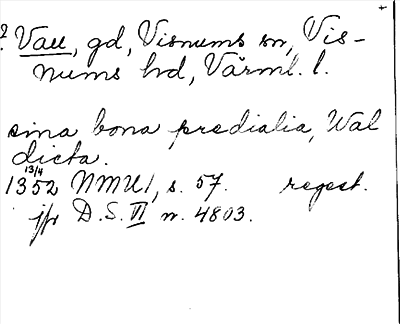 ? Vall, gd, Visnums sn, Vis-
nums hd, Värml. l.
sina bona predialia, Wal
dicta.
13/4
1352 NMU 1, s. 57. regest.
jfr D.S. VI nr. 4803.